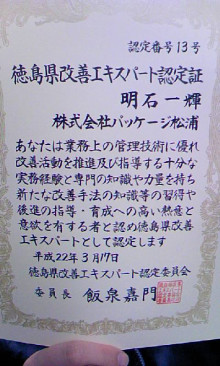 認定番号13号
徳島県改善エキスパート認定証
明石一輝
株式会社パッケージ松浦
あなたは業務上の管理技術に優れ
改善活動を推進及び指導する十分な
実務経験と専門の知識や力量を持ち
新たな改善手法の知識等の習得や
後進の指導・育成への高い熱意と
意欲を有する者と認め徳島県改善
エキスパートとして認定します
平成22年3月17日
徳島県改善エキスパート認定委員会
委員長 飯泉嘉門